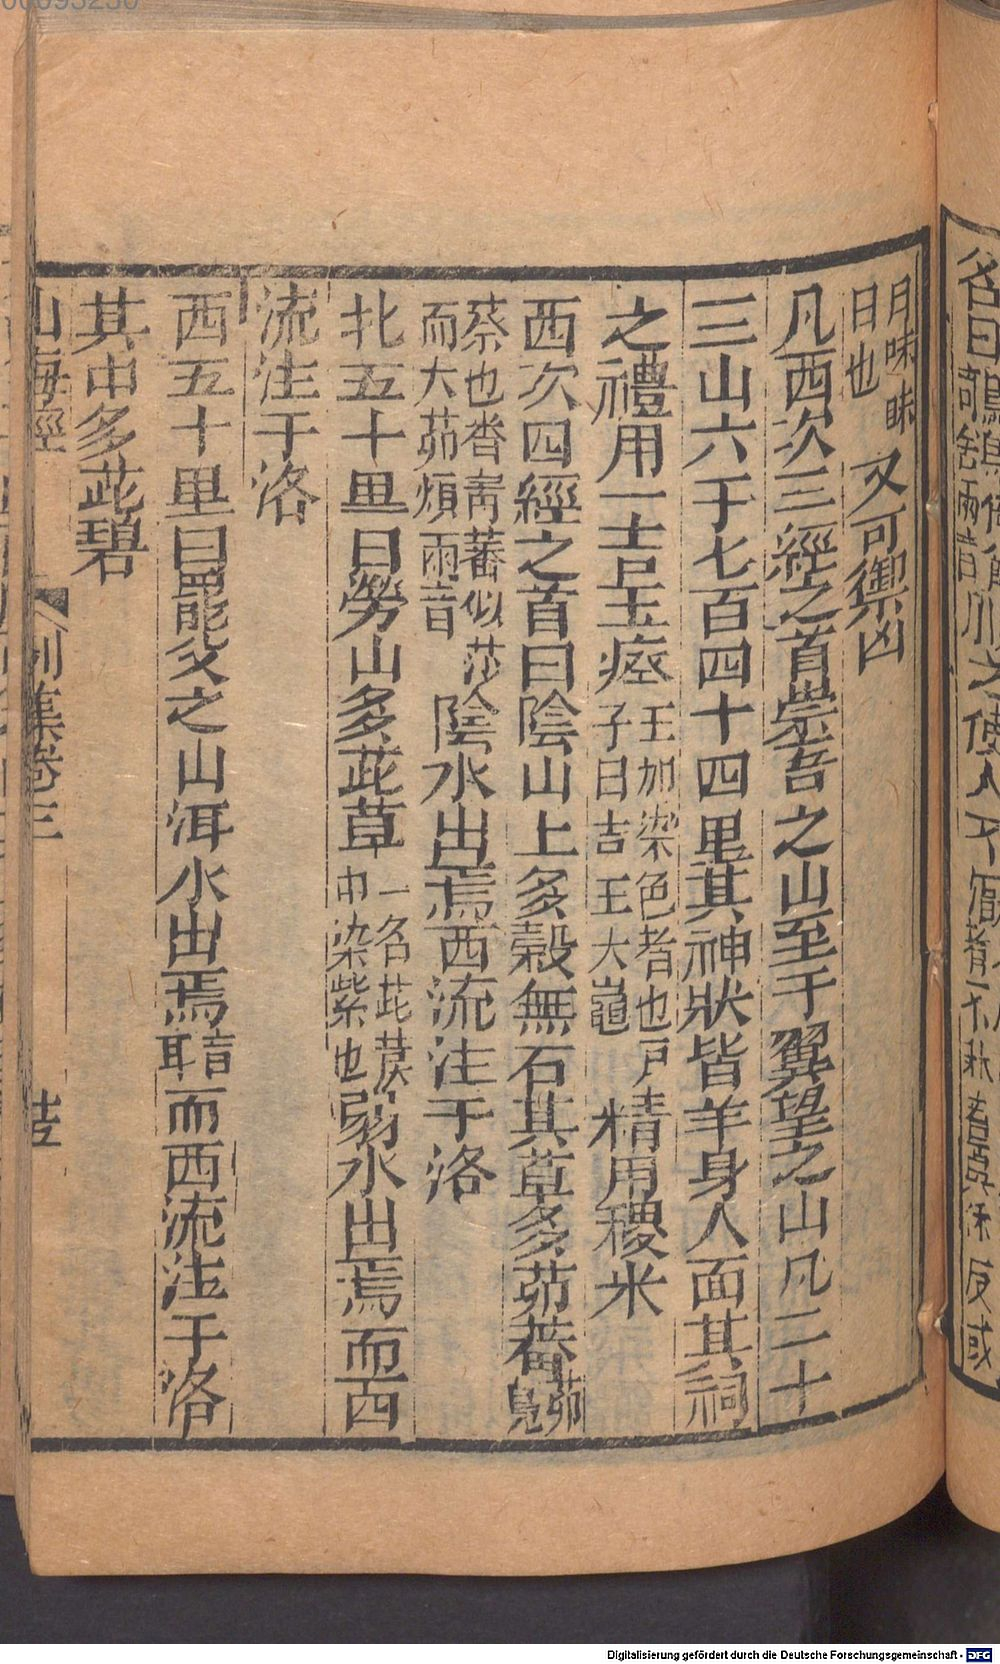 名曰
月味眛
日也
又可禦凶
凡西次三經之首崇吾之山至于翼望之山凡二十
三山六千七百四十四里其神狀皆羊身人面其祠
之禮用一吉玉瘞
王加染色者也尸
子曰吉王大龜
精用稷米
西次四經之首曰陰山上多榖無石其草多茆蕃
茆
鳧
蔡也沓靑蕃似莎
而大茆煩兩音
陰水出焉西流注于洛
北五十里曰勞山多茈草
一名茈䓞
中染紫也
弱水出焉而西
流注于洛
西五十里曰罷父之山洱水出焉
音
耳
而西流注于洛
其中多茈碧
山海經 列集卷三
00093230
Digitalisierung gefördert durch die Deutsche Forschungsgemeinschaft - DFG